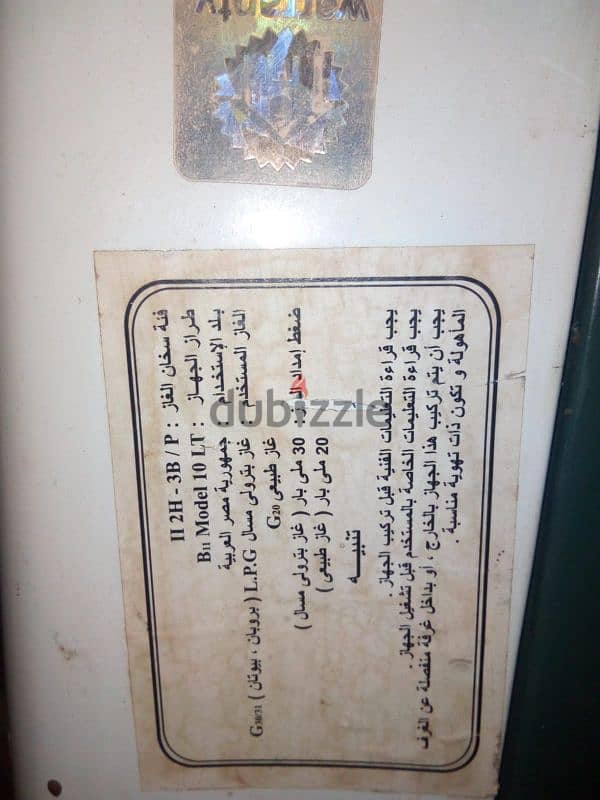 warranty
dubizzle
فئة سخان الغاز : II 2H - 3B / P
طراز الجهاز : B11 Model 10 LT
بلد الإستخدام : جمهورية مصر العربية
الغاز المستخدم : غاز بترولى مسال L.P.G ( بروبان ، بيوتان ) G30/31
غاز طبيعى G20
ضغط إمداد الغاز : 30 ملى بار ( غاز بترولى مسال )
20 ملى بار ( غاز طبيعى )
تنبيـــه
يجب قراءة التعليمات الفنية قبل تركيب الجهاز .
يجب قراءة التعليمات الخاصة بالمستخدم قبل تشغيل الجهاز .
يجب أن يتم تركيب هذا الجهاز بالخارج ، أو بداخل غرفة منفصلة عن الغرف
المأهولة و تكون ذات تهوية مناسبة .